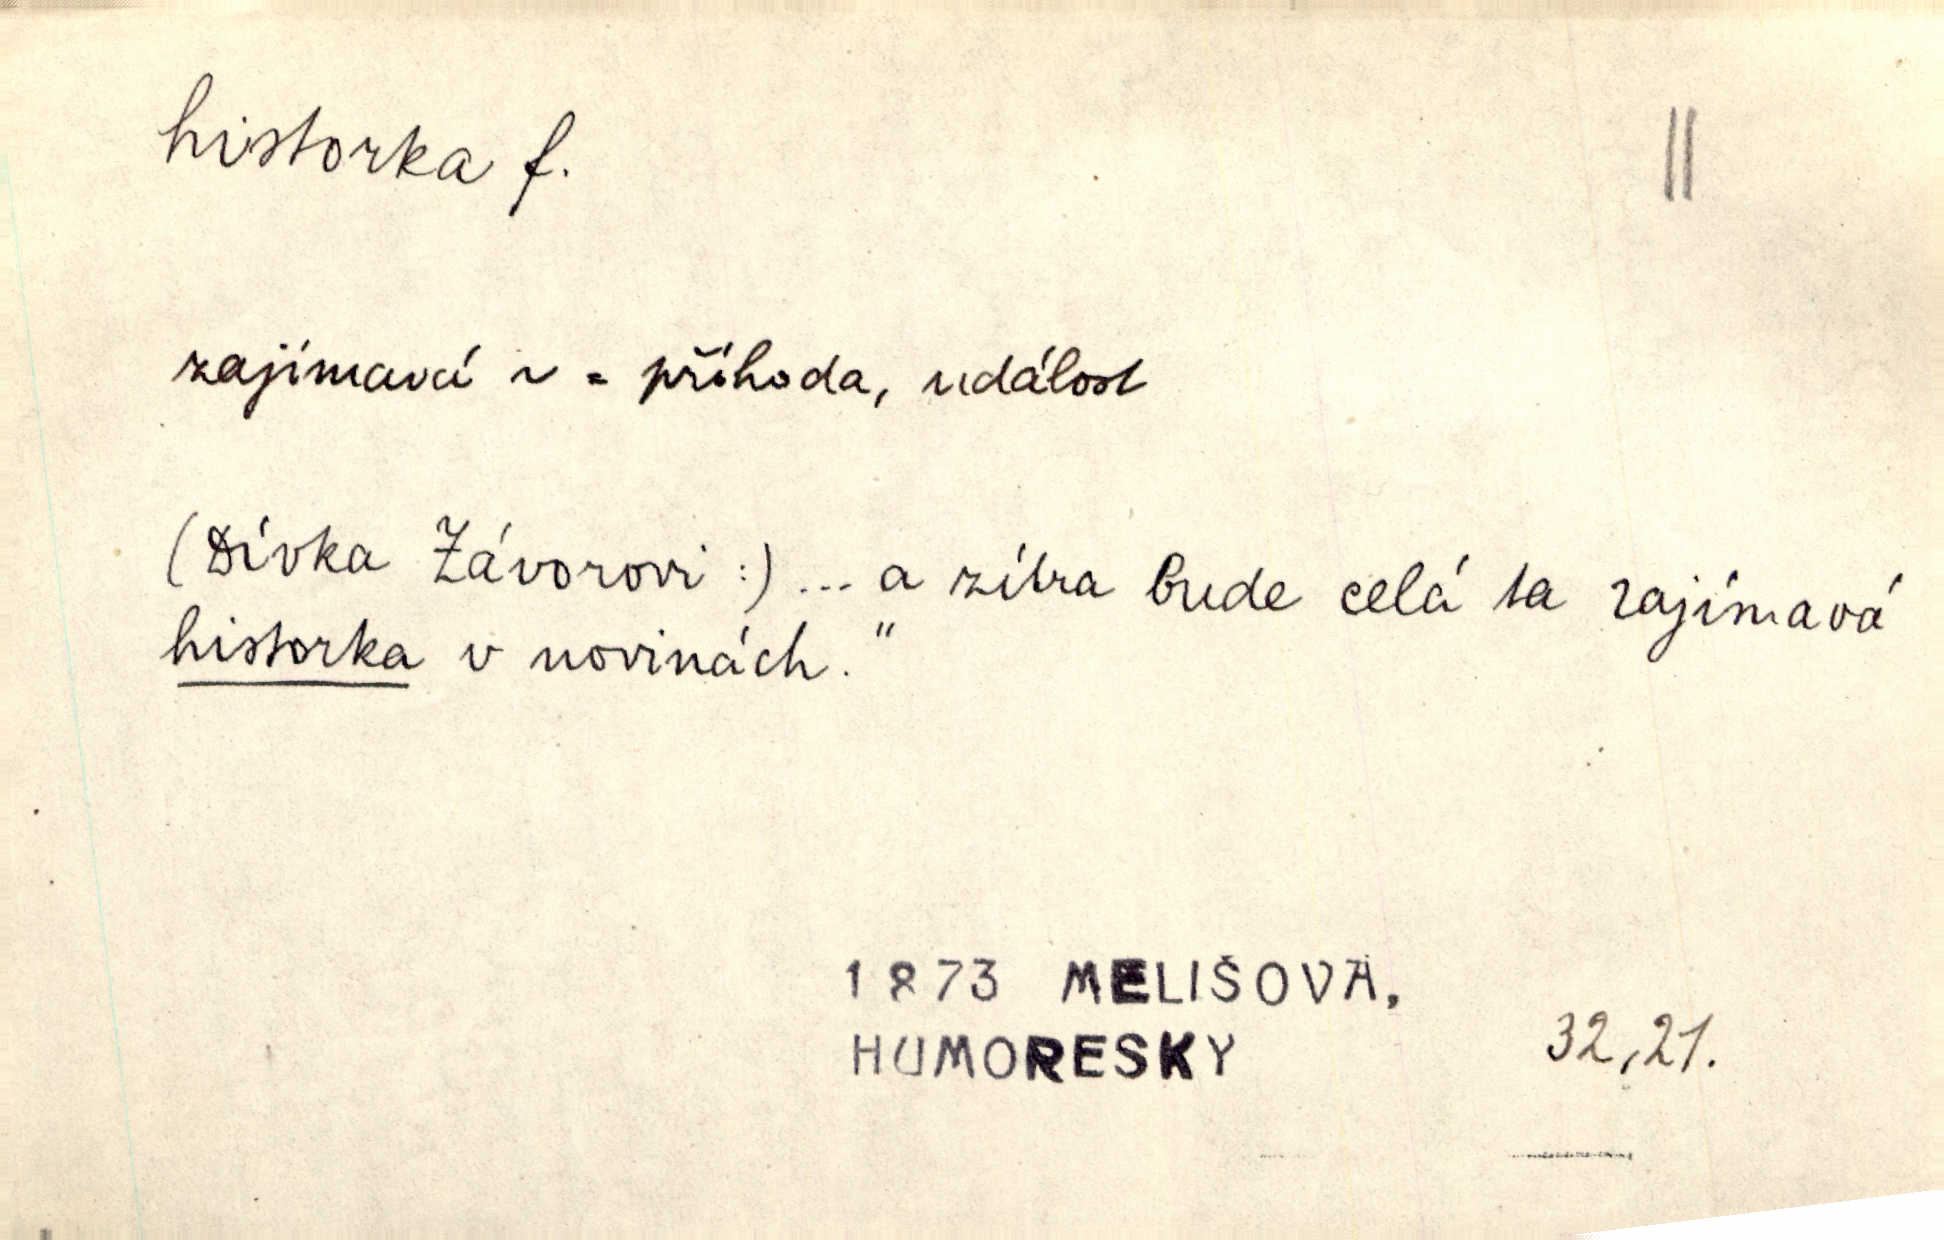 historka f.
||
zajímavá ~ = příhoda, událost
(Dívka Závorovi:) ... a zítra bude celá ta zajímavá
historka v novinách."
1873 MELIŠOVÁ,
HUMORESKY
32,21.